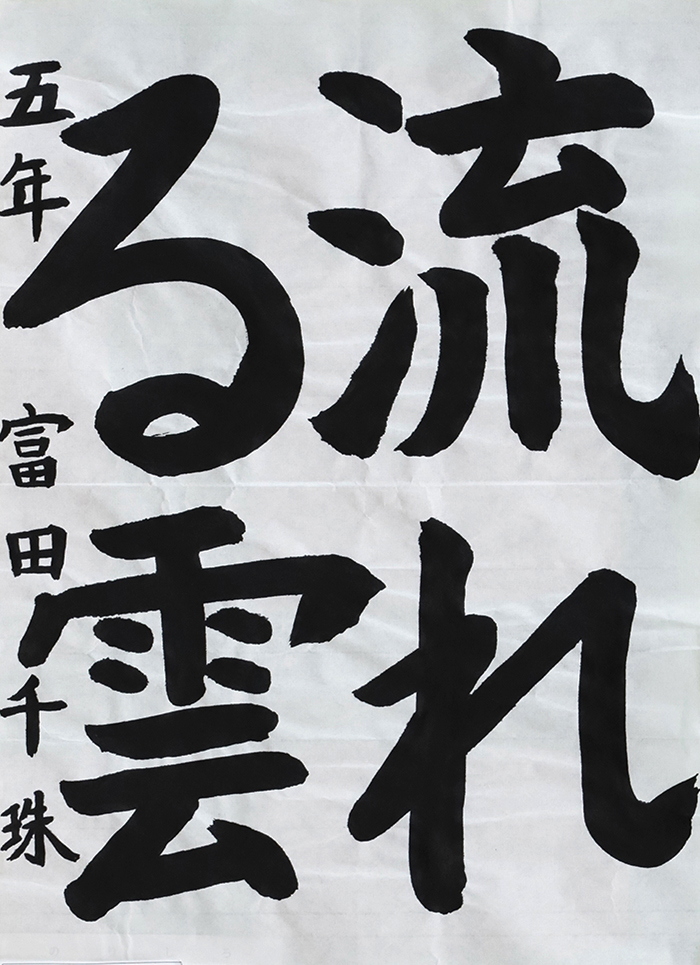 流れ
る雲
五年 富田千珠